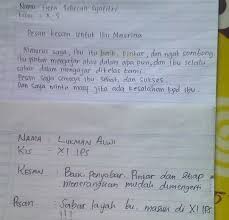 Nama : Fiera Sabrilah Syafitri
Kelas : X-5
Pesan kesan untuk Ibu Meurina
Menurut saya, ibu itu baik, pintar, dan ngak sombong
Ibu pintar mengajar atau dalam apa pun, dan Ibu selalu
sabar dalam mengajar di kelas kami.
Pesan saya semoga ibu sehat, dan sukses.
Dan saya minta maaf jika ada kesalahan kpd ibu.
NAMA : LUKMAN ALWI
Kls : XI IPS
KESAN : Baik, Penyabar, Pintar dan setiap
menerangkan mudah dimengerti
Pesan : Sabar ya bu, masuk di XI IPS
!!!